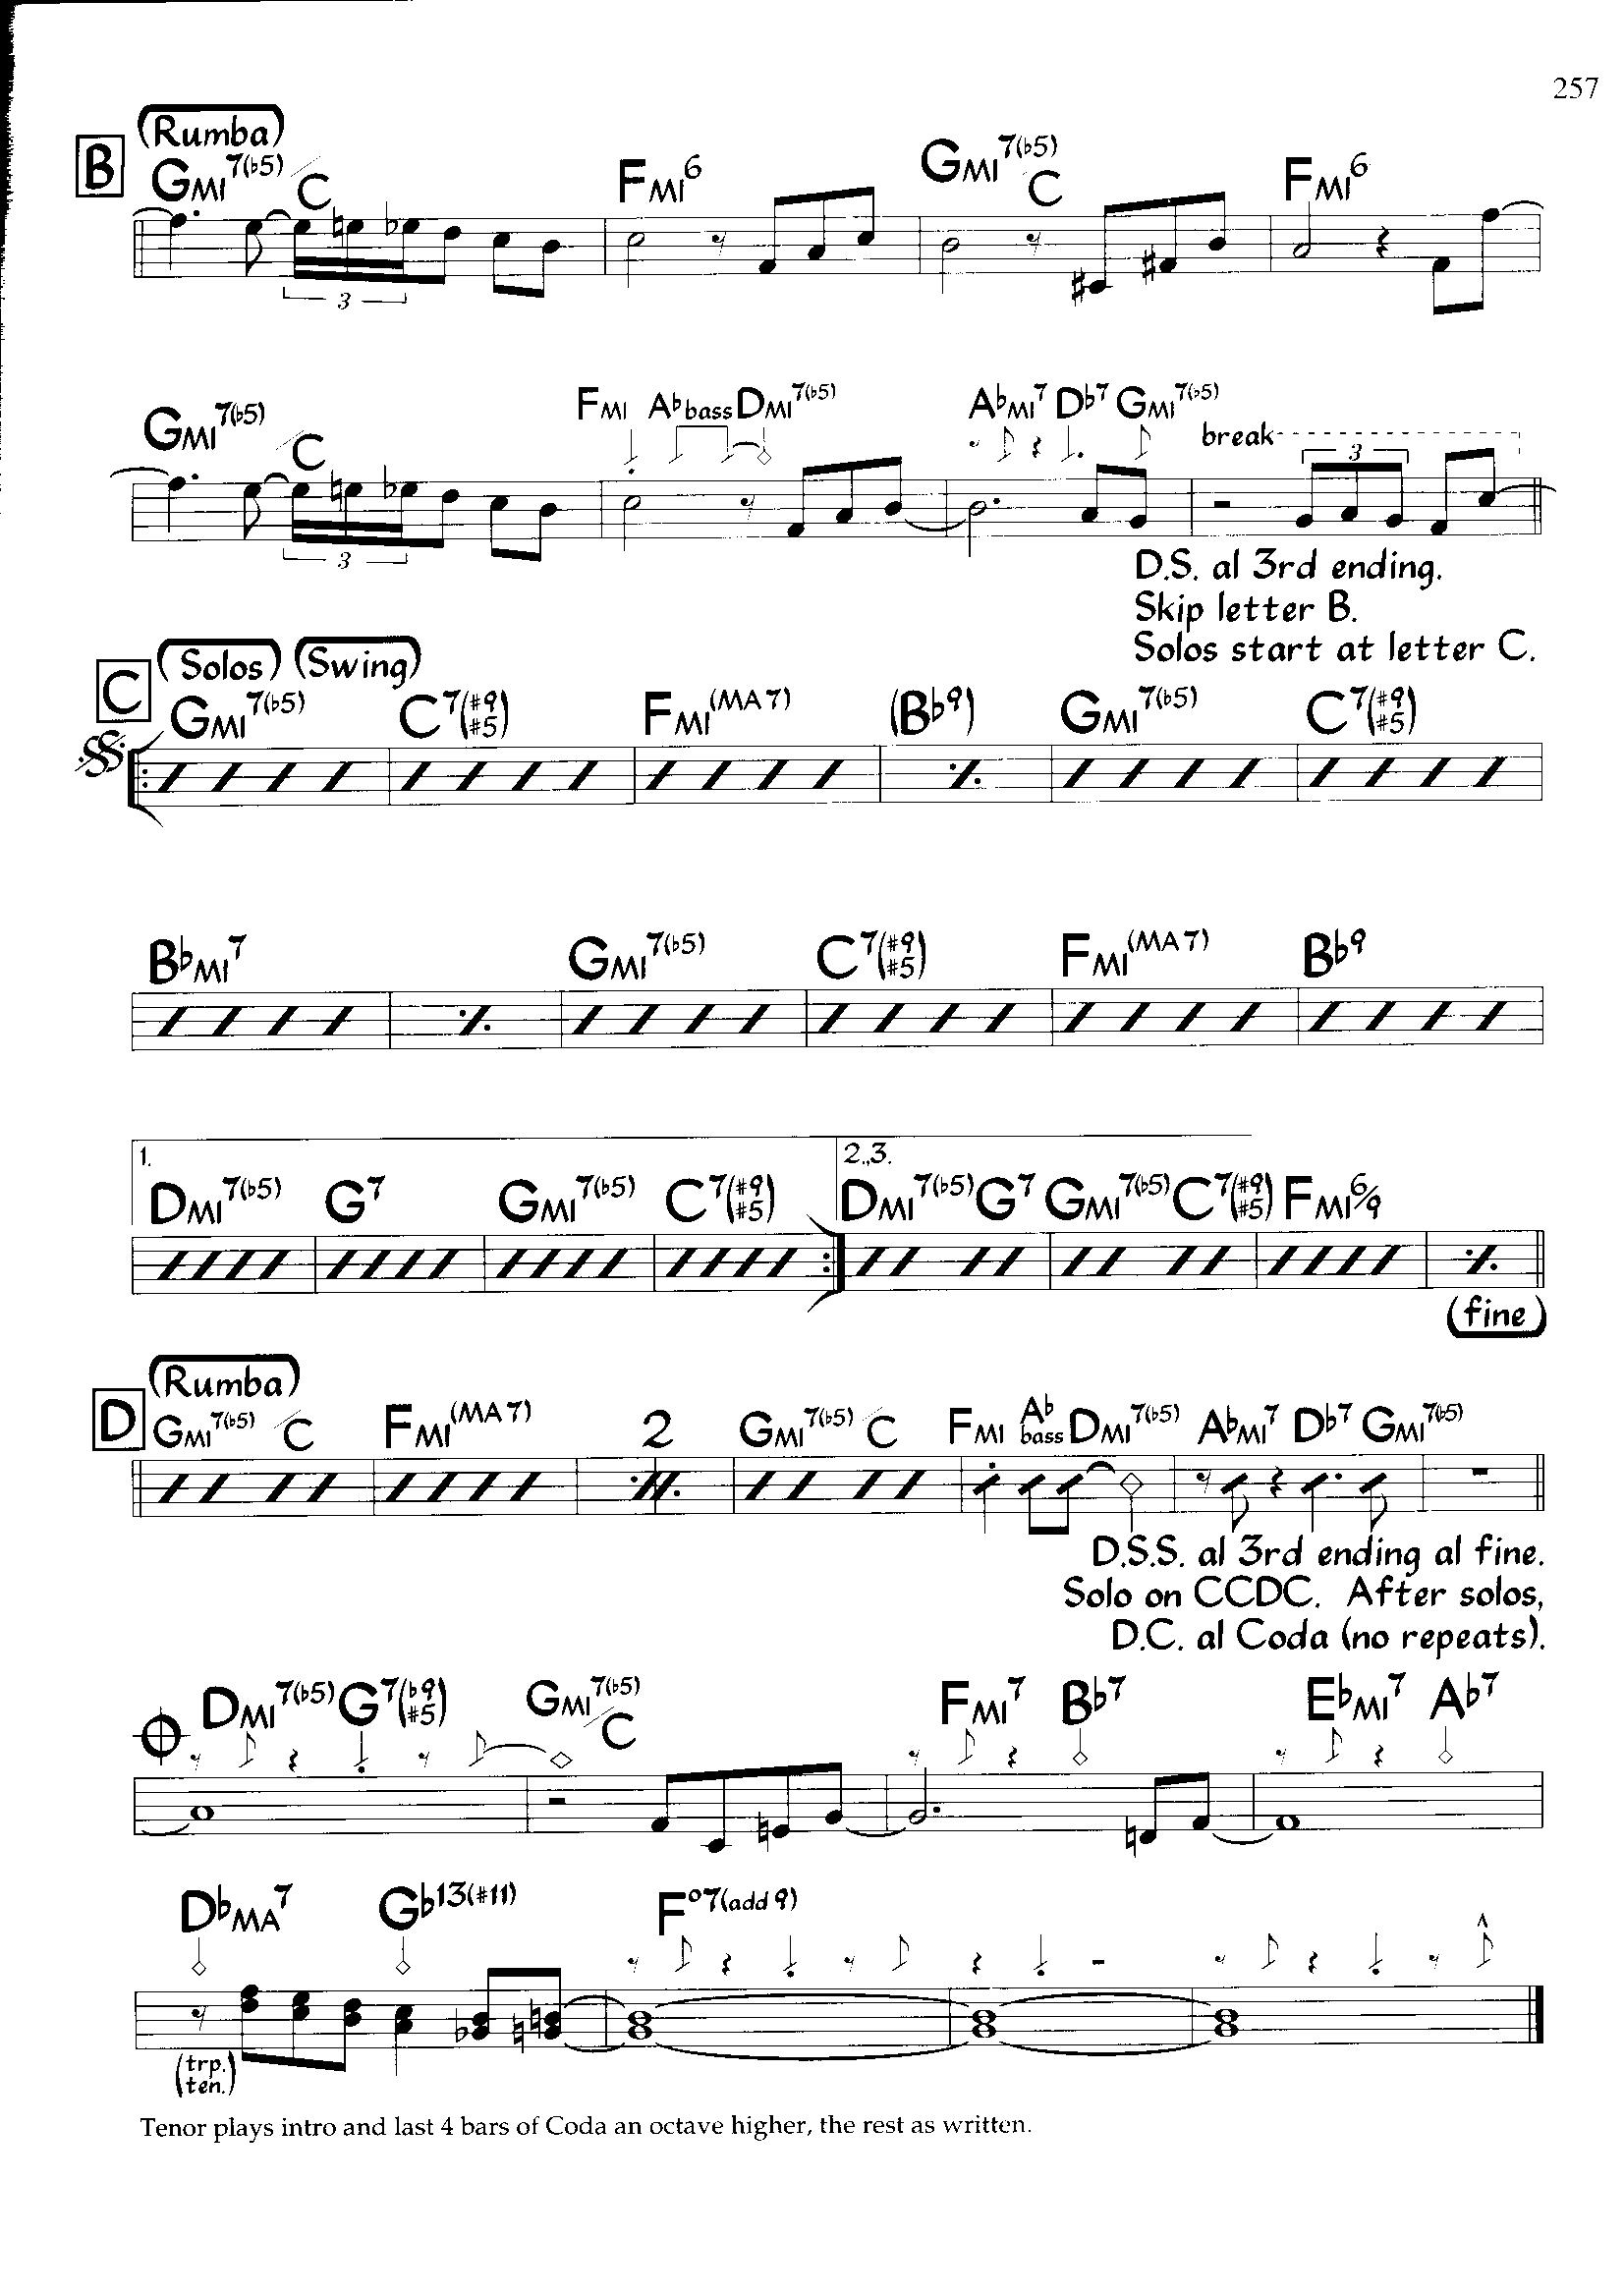 257
(Rumba)
B GMI7(♭5)/C FMI6 GMI7(♭5) C FMI6
3
GMI7(♭5)/C FMI A♭bass DMI7(♭5) A♭MI7 D♭7 GMI7(♭5)
break
3 3
D.S. al 3rd ending.
Skip letter B.
Solos start at letter C.
(Solos) (Swing)
C GMI7(♭5) C7(♯9♯5) FMI(MA7) (B♭9) GMI7(♭5) C7(♯9♯5)
B♭MI7 GMI7(♭5) C7(♯9♯5) FMI(MA7) B♭9
1. 2.,3.
DMI7(♭5) G7 GMI7(♭5) C7(♯9♯5) DMI7(♭5) G7 GMI7(♭5) C7(♯9♯5) FMI6/9
(fine)
(Rumba)
D GMI7(♭5)/C FMI(MA7) 2 GMI7(♭5)/C FMI A♭bass DMI7(♭5) A♭MI7 D♭7 GMI7(♭5)
D.S.S. al 3rd ending al fine.
Solo on CCDC. After solos,
D.C. al Coda (no repeats).
DMI7(♭5) G7(♭9♯5) GMI7(♭5)/C FMI7 B♭7 E♭MI7 A♭7
D♭MA7 G♭13(♯11) F°7(add 9)
(trp.
ten.)
Tenor plays intro and last 4 bars of Coda an octave higher, the rest as written.